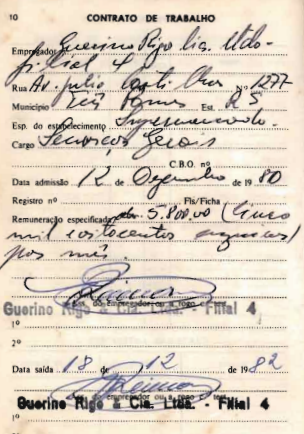 10 CONTRATO DE TRABALHO
Empregador Guerino Rigo Cia. Ltda-
filial 4
Rua Av. Julio Nº 1277
Município Est. RS
Esp. do estabelecimento Supermercado.
Cargo Serviços Gerais
C.B.O. nº
Data admissão 12 de Dezembro de 1980
Registro nº Fls/Ficha
Remuneração especificada 5.800,00 (Cinco
mil oitocentos cruzeiros)
por mês.
do empregador ou a rogo
Guerino Rigo & Cia. Ltda. - Filial 4
1º
2º
Data saída 18 de 12 de 1982
do empregador ou a rogo c/ test.
Guerino Rigo & Cia. Ltda. - Filial 4
1º